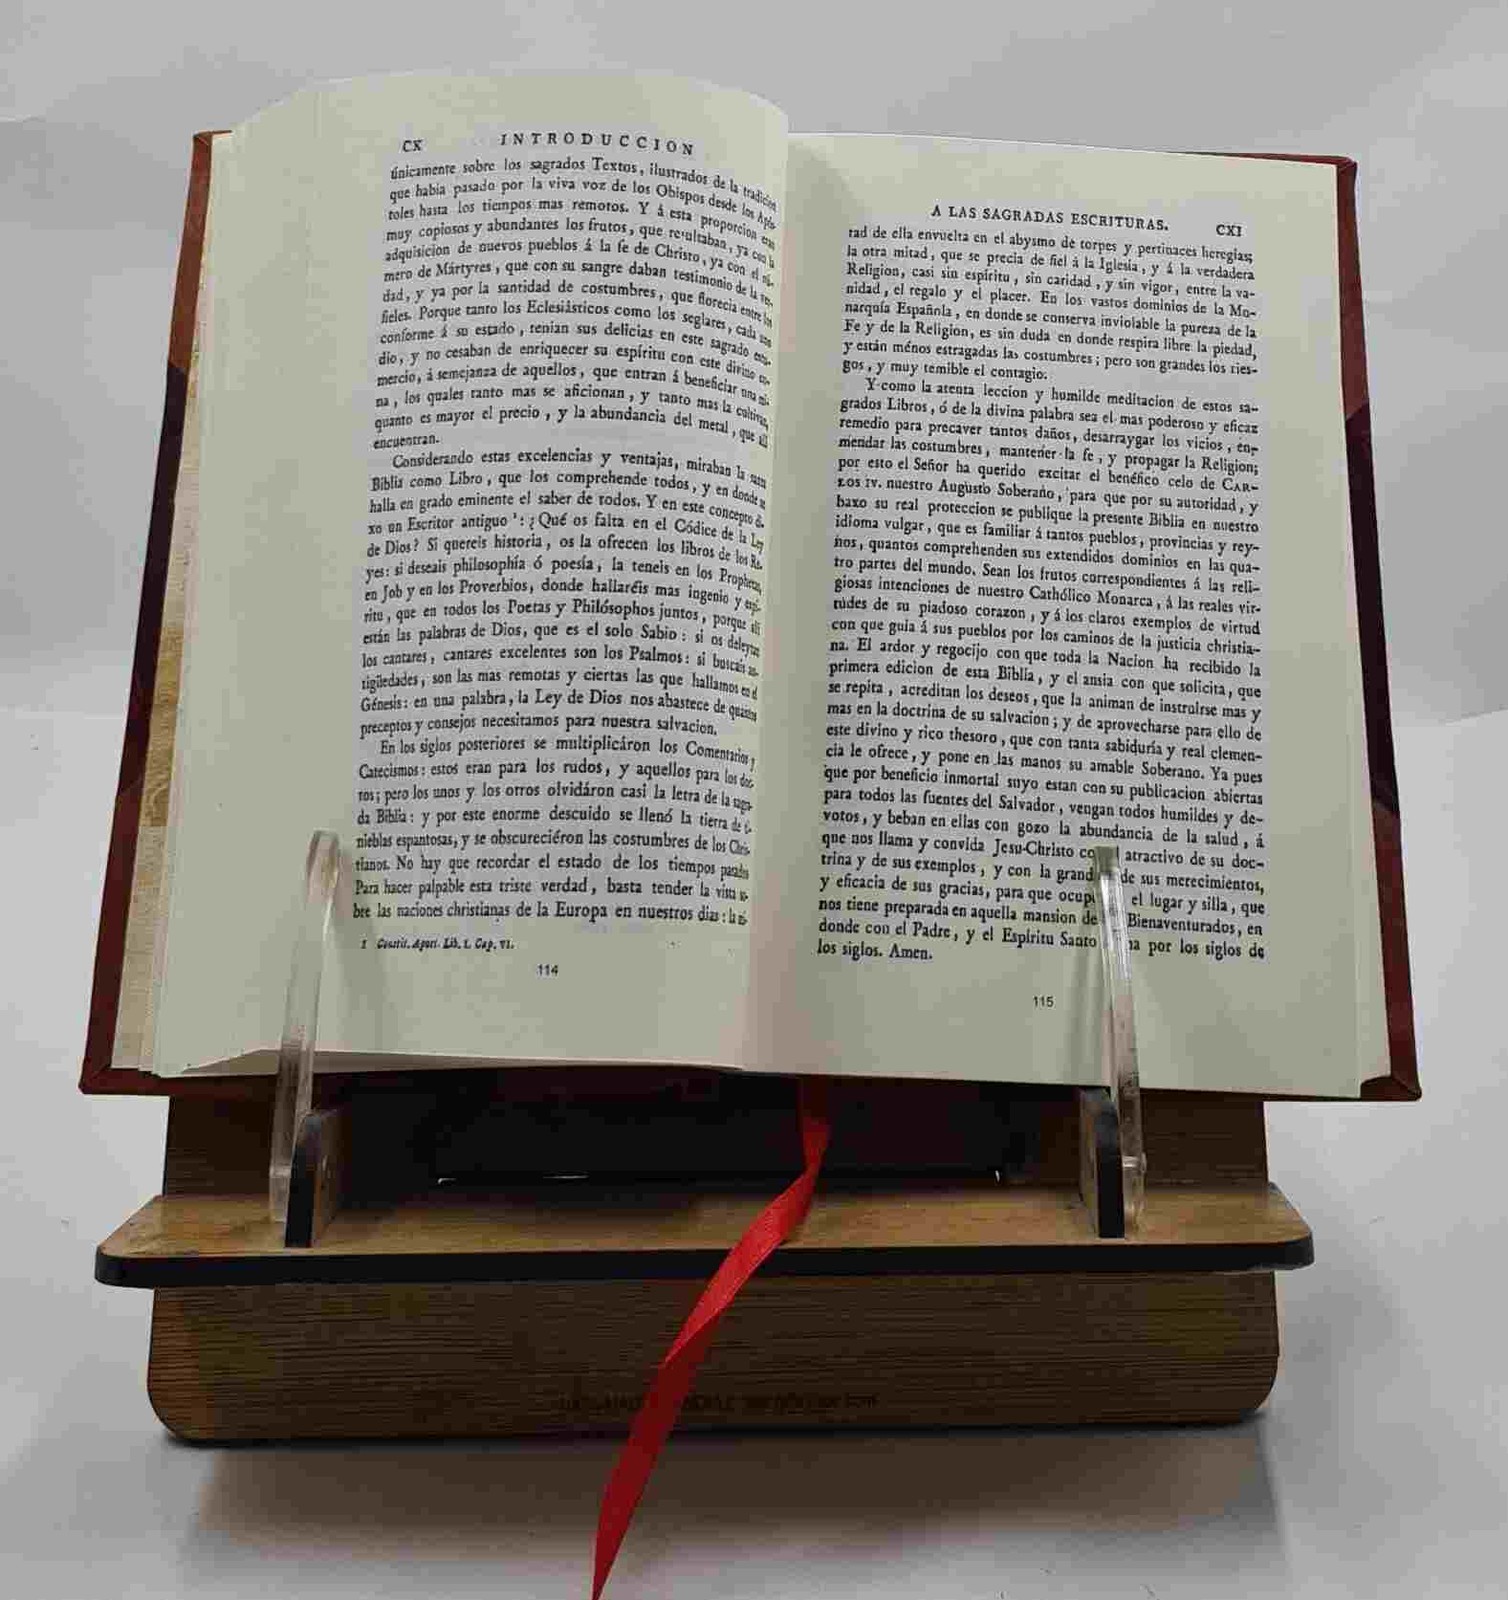 CX INTRODUCCION
únicamente sobre los sagrados Textos, ilustrados de la tradicion
que habia pasado por la viva voz de los Obispos desde los Após-
toles hasta los tiempos mas remotos. Y á esta proporcion eran
muy copiosos y abundantes los frutos, que resultaban, ya con la
adquisicion de nuevos pueblos á la fe de Christo, ya con el nú-
mero de Mártyres, que con su sangre daban testimonio de la ver-
dad, y ya por la santidad de costumbres, que florecia entre los
fieles. Porque tanto los Eclesiásticos como los seglares, cada uno
conforme á su estado, tenian sus delicias en este sagrado estu-
dio, y no cesaban de enriquecer su espíritu con este divino co-
mercio, á semejanza de aquellos, que entran á beneficiar una mi-
na, los quales tanto mas se aficionan, y tanto mas la cultivan,
quanto es mayor el precio, y la abundancia del metal, que allí
encuentran.
Considerando estas excelencias y ventajas, miraban la santa
Biblia como Libro, que los comprehende todos, y en donde se
halla en grado eminente el saber de todos. Y en este concepto di-
xo un Escritor antiguo ¹: ¿Qué os falta en el Códice de la Ley
de Dios? Si quereis historia, os la ofrecen los libros de los Re-
yes: si deseais philosophía ó poesía, la teneis en los Prophetas,
en Job y en los Proverbios, donde hallaréis mas ingenio y espí-
ritu, que en todos los Poetas y Philósophos juntos, porque allí
están las palabras de Dios, que es el solo Sabio: si os deleytan
los cantares, cantares excelentes son los Psalmos: si buscais an-
tigüedades, son las mas remotas y ciertas las que hallamos en el
Génesis: en una palabra, la Ley de Dios nos abastece de quantos
preceptos y consejos necesitamos para nuestra salvacion.
En los siglos posteriores se multiplicáron los Comentarios y
Catecismos: estos eran para los rudos, y aquellos para los doc-
tos; pero los unos y los otros olvidáron casi la letra de la sagra-
da Biblia: y por este enorme descuido se llenó la tierra de ti-
nieblas espantosas, y se obscureciéron las costumbres de los Chris-
tianos. No hay que recordar el estado de los tiempos pasados
Para hacer palpable esta triste verdad, basta tender la vista so-
bre las naciones christianas de la Europa en nuestros dias: la mi-
1 Constit. Apost. Lib. I. Cap. VI.
114
A LAS SAGRADAS ESCRITURAS. CXI
tad de ella envuelta en el abysmo de torpes y pertinaces heregias;
la otra mitad, que se precia de fiel á la Iglesia, y á la verdadera
Religion, casi sin espíritu, sin caridad, y sin vigor, entre la va-
nidad, el regalo y el placer. En los vastos dominios de la Mo-
narquía Española, en donde se conserva inviolable la pureza de la
Fe y de la Religion, es sin duda en donde respira libre la piedad,
y están ménos estragadas las costumbres; pero son grandes los ries-
gos, y muy temible el contagio.
Y como la atenta leccion y humilde meditacion de estos sa-
grados Libros, ó de la divina palabra sea el mas poderoso y eficaz
remedio para precaver tantos daños, desarraygar los vicios, en-
mendar las costumbres, mantener la fe, y propagar la Religion;
por esto el Señor ha querido excitar el benéfico celo de CAR-
LOS IV. nuestro Augusto Soberano, para que por su autoridad, y
baxo su real proteccion se publique la presente Biblia en nuestro
idioma vulgar, que es familiar á tantos pueblos, provincias y rey-
nos, quantos comprehenden sus extendidos dominios en las qua-
tro partes del mundo. Sean los frutos correspondientes á las reli-
giosas intenciones de nuestro Cathólico Monarca, á las reales vir-
tudes de su piadoso corazon, y á los claros exemplos de virtud
con que guia á sus pueblos por los caminos de la justicia christia-
na. El ardor y regocijo con que toda la Nacion ha recibido la
primera edicion de esta Biblia, y el ansia con que solicita, que
se repita, acreditan los deseos, que la animan de instruirse mas y
mas en la doctrina de su salvacion; y de aprovecharse para ello de
este divino y rico thesoro, que con tanta sabiduría y real clemen-
cia le ofrece, y pone en las manos su amable Soberano. Ya pues
que por beneficio inmortal suyo estan con su publicacion abiertas
para todos las fuentes del Salvador, vengan todos humildes y de-
votos, y beban en ellas con gozo la abundancia de la salud, á
que nos llama y convida Jesu-Christo atractivo de su doc-
trina y de sus exemplos, y con la de sus merecimientos,
y eficacia de sus gracias, para que el lugar y silla, que
nos tiene preparada en aquella mansion de Bienaventurados, en
donde con el Padre, y el Espíritu Santo por los siglos de
los siglos. Amen.
115